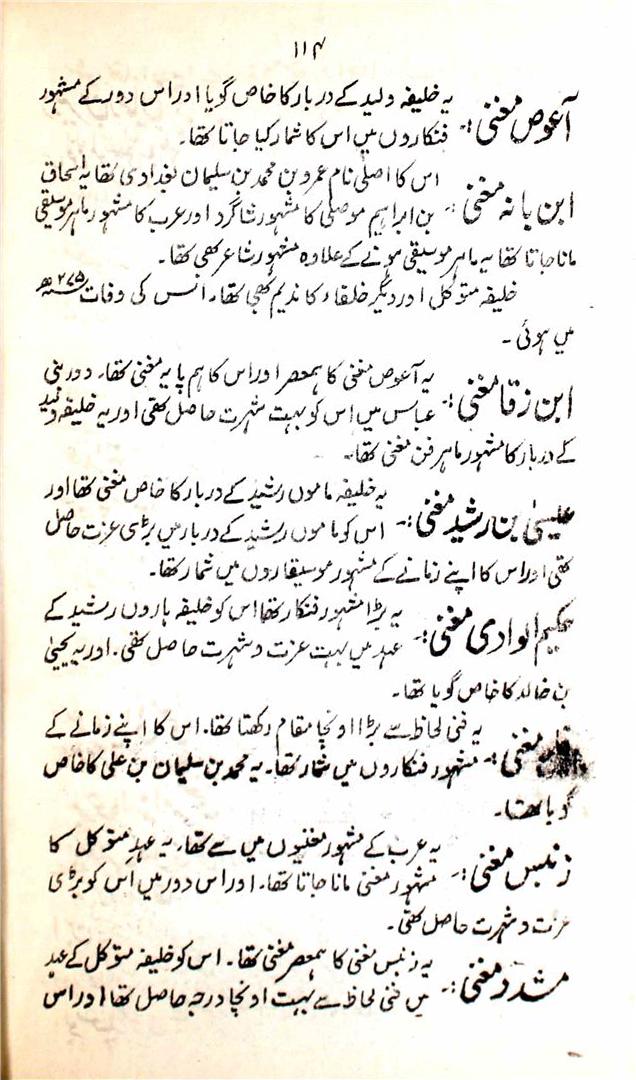 ۱۱۴
آعوص مغنی:۔ یہ خلیفہ ولید کے دربار کا خاص گویا اور اس دور کے مشہور
فنکاروں میں اس کا شمار کیا جاتا تھا۔
ابن بانہ مغنی:۔ اس کا اصلی نام عمرو بن محمد بن سلیمان بغدادی تھا یہ اسحاق
بن ابراہیم موصلی کا مشہور شاگرد اور عرب کا مشہور ماہر موسیقی
مانا جاتا تھا یہ ماہر موسیقی ہونے کے علاوہ مشہور شاعر بھی تھا۔
خلیفہ متوکل اور دیگر خلفاء کا ندیم بھی تھا۔ اس کی وفات ۲۷۵ھ
میں ہوئی۔
ابن زقا مغنی:۔ یہ آعوص مغنی کا ہمعصر اور اس کا ہم پایہ مغنی تھا۔ دور بنی
عباس میں اس کو بہت شہرت حاصل تھی اور یہ خلیفہ ولید
کے دربار کا مشہور ماہر فن مغنی تھا۔
عیسیٰ بن رشید مغنی:۔ یہ خلیفہ ماموں رشید کے دربار کا خاص مغنی تھا اور
اس کو ماموں رشید کے دربار میں بڑی عزت حاصل
تھی اور اس کا اپنے زمانے کے مشہور موسیقاروں میں شمار تھا۔
حکیم الوادی مغنی:۔ یہ بڑا مشہور فنکار تھا اس کو خلیفہ ہاروں رشید کے
عہد میں بہت عزت و شہرت حاصل تھی۔ اور یہ یحییٰ
بن خالد کا خاص گویا تھا۔
مغنی:۔ یہ فنی لحاظ سے بڑا اونچا مقام رکھتا تھا۔ اس کا اپنے زمانے کے
مشہور فنکاروں میں شمار تھا۔ یہ محمد بن سلیمان بن علی کا خاص
گویا تھا۔
زنبس مغنی:۔ یہ عرب کے مشہور مغنیوں میں سے تھا۔ یہ عہدِ متوکل کا
مشہور مغنی مانا جاتا تھا۔ اور اس دور میں اس کو بڑی
عزت و شہرت حاصل تھی۔
مشدد مغنی:۔ یہ زنبس مغنی کا ہمعصر مغنی تھا۔ اس کو خلیفہ متوکل کے عہد
میں فنی لحاظ سے بہت اونچا درجہ حاصل تھا اور اس